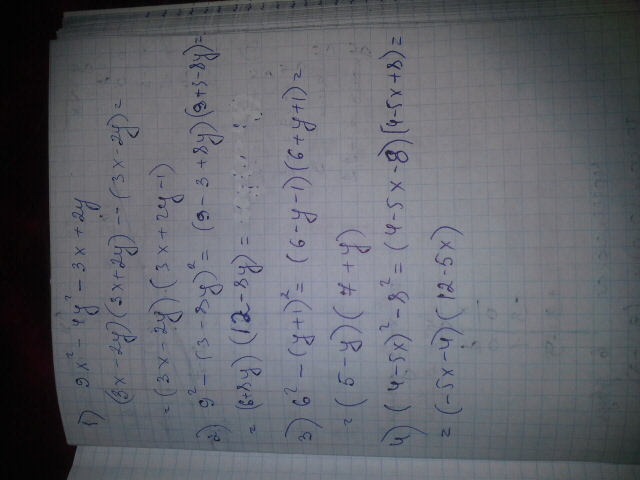 1) 9x² - 4y² - 3x + 2y
(3x - 2y)(3x + 2y) - (3x - 2y) =
= (3x - 2y)(3x + 2y - 1)
2) 9² - (3 - 8y)² = (9 - 3 + 8y)(9 + 3 - 8y) =
= (6 + 8y)(12 - 8y) =
3) 6² - (y + 1)² = (6 - y - 1)(6 + y + 1) =
= (5 - y)(7 + y)
4) (4 - 5x)² - 8² = (4 - 5x - 8)(4 - 5x + 8) =
= (-5x - 4)(12 - 5x)